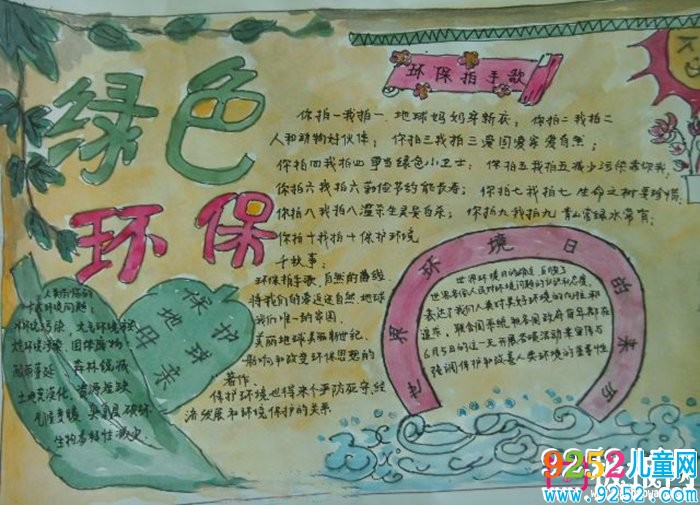 绿色
环保
环保拍手歌
你拍一我拍一 地球妈妈穿新衣; 你拍二我拍二
人和动物好伙伴; 你拍三我拍三爱国爱家爱自然;
你拍四我拍四争当绿色小卫士; 你拍五我拍五减少污染
你拍六我拍六勤俭节约能长寿; 你拍七我拍七生命之树要珍惜
你拍八我拍八滥杀生灵 你拍九我拍九 青山常绿水常有;
你拍十我拍十保护环境
千故事:
环保拍手歌、自然的
将我们的 近大自然、地球
我们唯一的家园、
美丽地球美丽新世纪、
影响和改变环保思想的
著作、
保护环境也得来个严防死守、经
济发展和环境保护的关系
保护
地球
母亲
人类面临的
十大环境问题:
大气污染
固体废物
森林锐减
土地荒漠化、资源短缺
气候变暖、臭氧层破坏
生物多样性减少
世界环境日的来历
世界环境日的确立、反映了
世界各国人民对环境问题的认识和态度、
表达了我们人类对美好环境的向往和
追求、联合国系统和各国政府每年都在
6月5日的这一天开展各项活动来宣传与
强调保护和改善人类环境的重要性
9252儿童网
www.9252.com